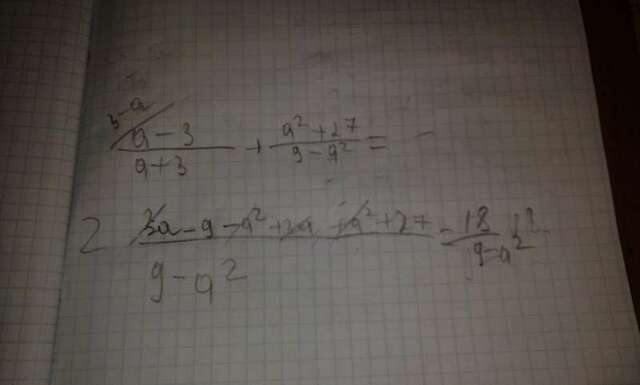 3-a
a-3/a+3 + a²+27/9-a² =
3a-9-a²+3a+a²+27/9-a² = 18/9-a²